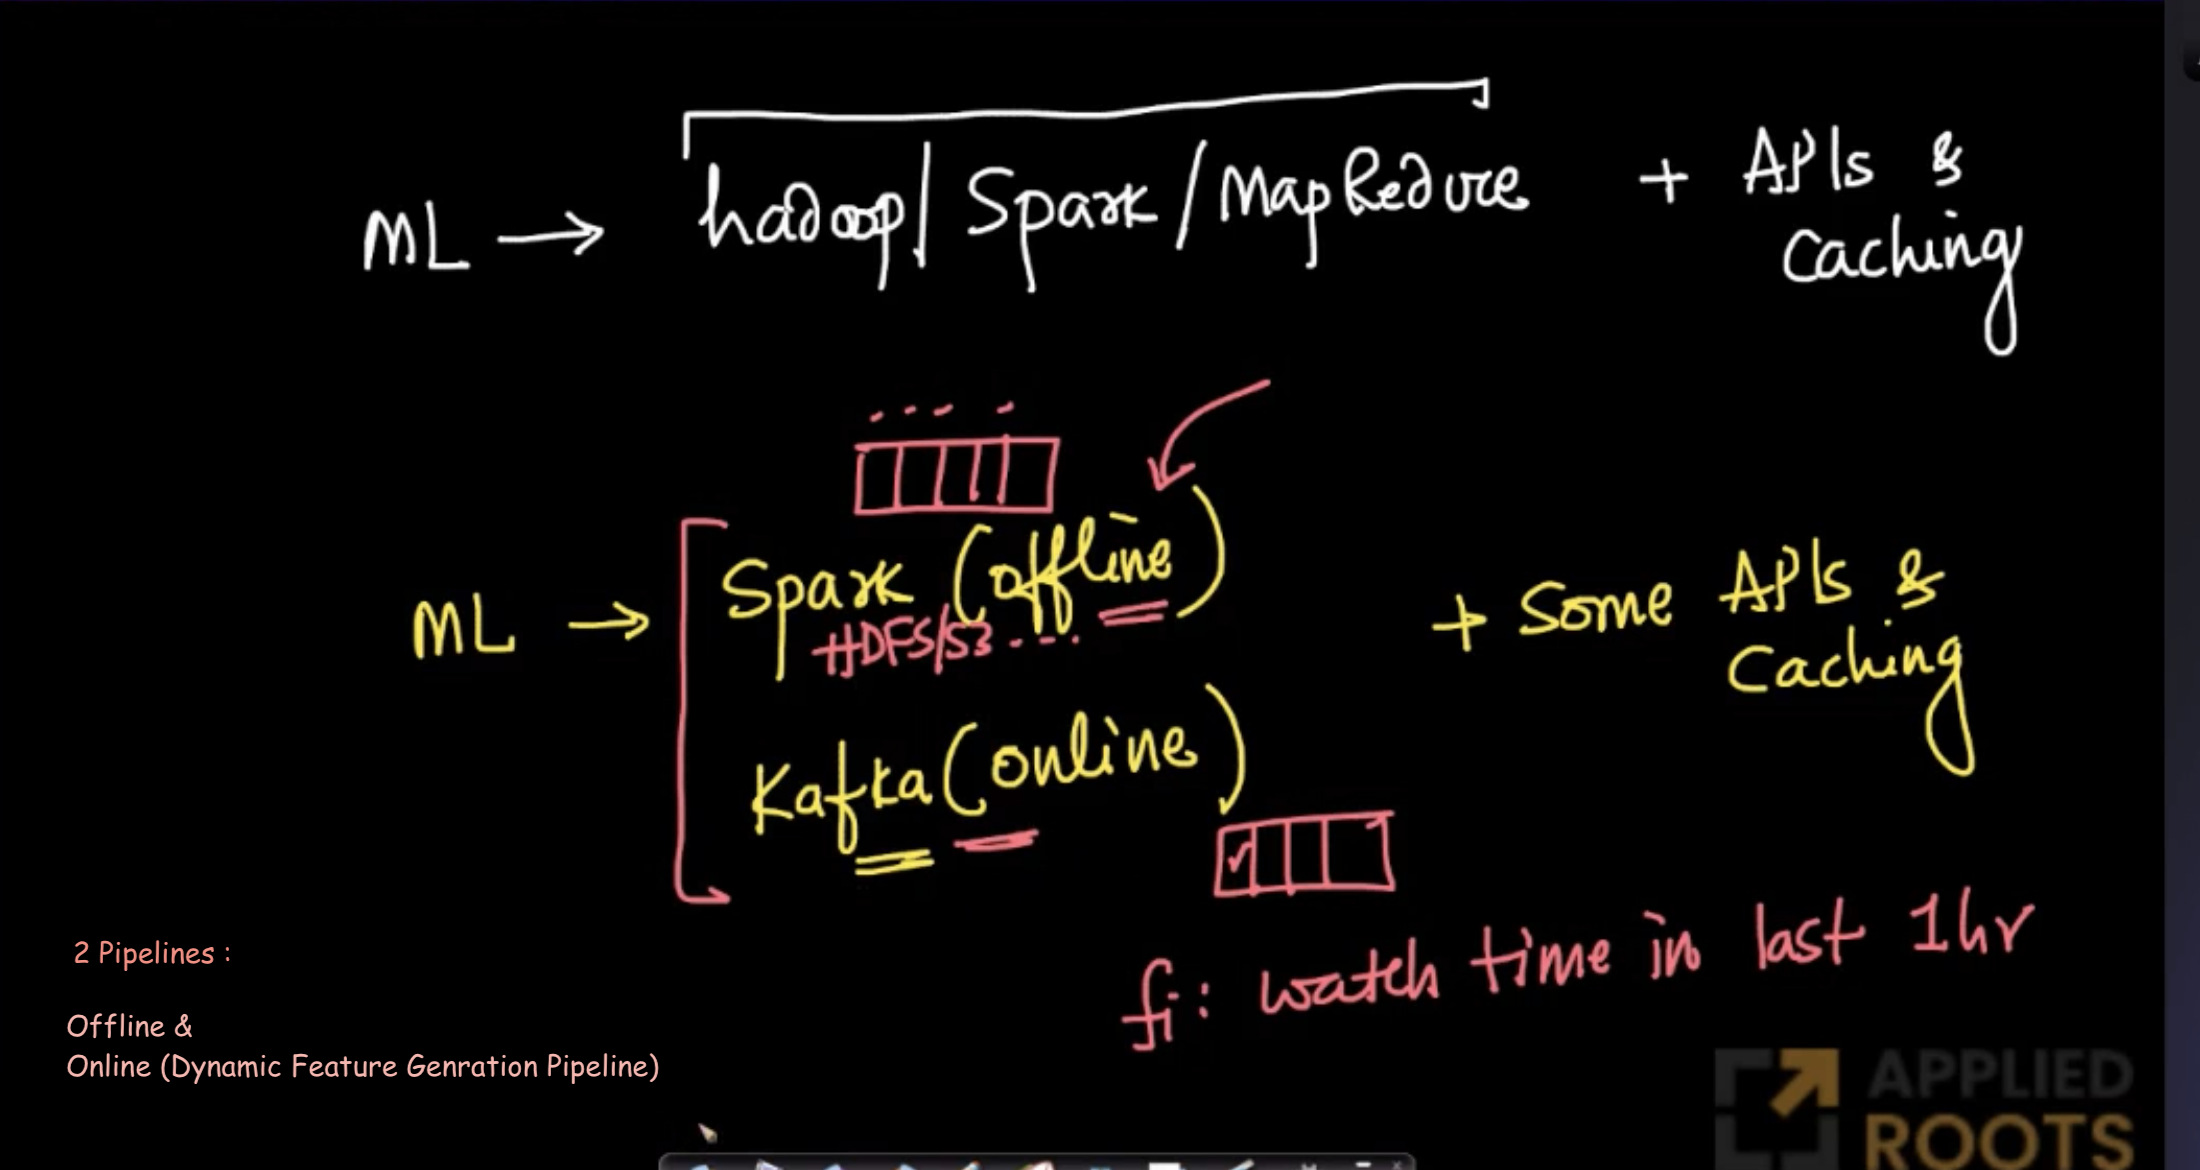 ML → hadoop / Spark / MapReduce + APIs &
Caching
ML → Spark (offline) + Some APIs &
Caching
HDFS/S3 ....
Kafka (online)
fi: watch time in last 1hr
2 Pipelines :
Offline &
Online (Dynamic Feature Genration Pipeline)
APPLIED
ROOTS